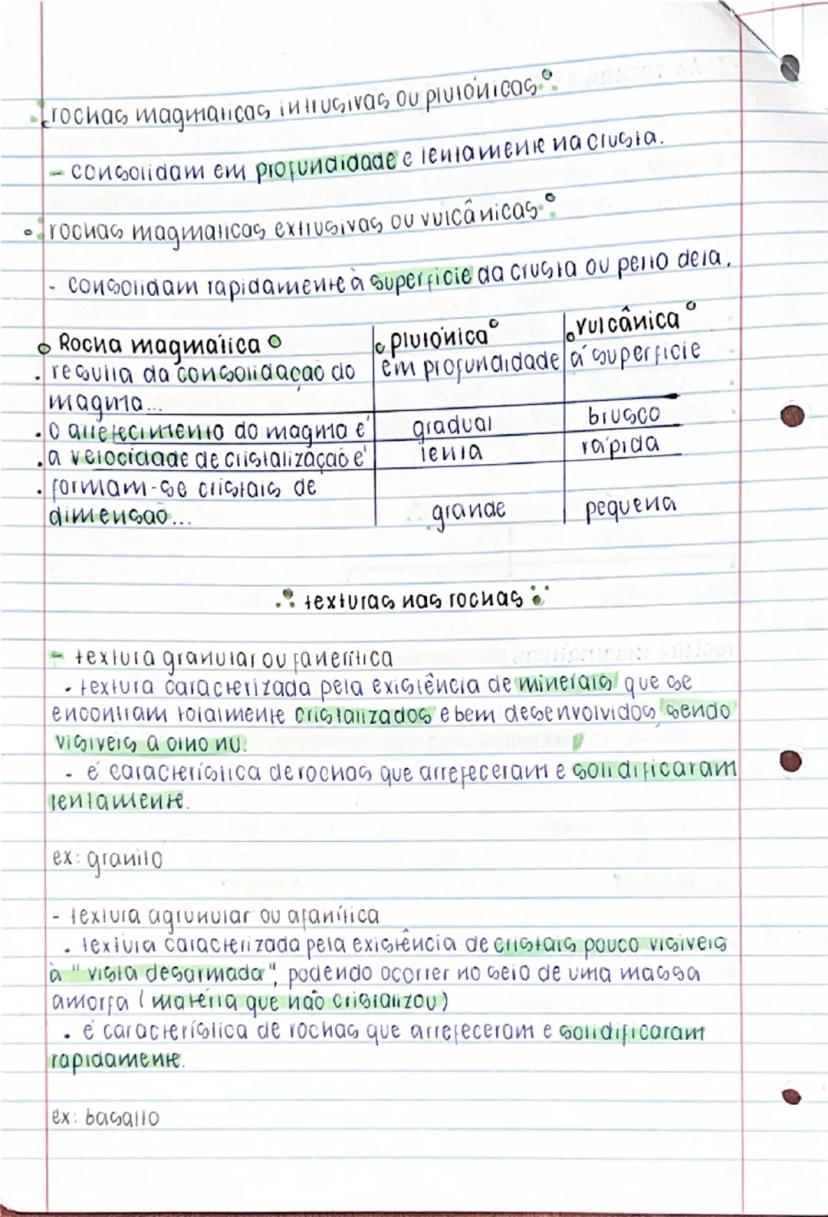 rochas magmáticas intrusivas ou plutónicas
- consolidam em profundidade e lentamente na crusta.
rochas magmáticas extrusivas ou vulcânicas
- consolidam rapidamente à superfície da crusta ou perto dela.
Rocha magmática plutónica vulcânica
. resulta da consolidação do em profundidade à superfície
magma...
. o arrefecimento do magma é gradual brusco
. a velocidade de cristalização é lenta rápida
. formam-se cristais de
dimensão... grande pequena
texturas nas rochas
- textura granular ou fanerítica
. textura caracterizada pela existência de minerais que se
encontram totalmente cristalizados e bem desenvolvidos sendo
visíveis a olho nu.
. é característica de rochas que arrefeceram e solidificaram
lentamente.
ex: granito
- textura agranular ou afanítica
. textura caracterizada pela existência de cristais pouco visíveis
à "vista desarmada", podendo ocorrer no seio de uma massa
amorfa (matéria que não cristalizou)
. é característica de rochas que arrefeceram e solidificaram
rapidamente.
ex: basalto